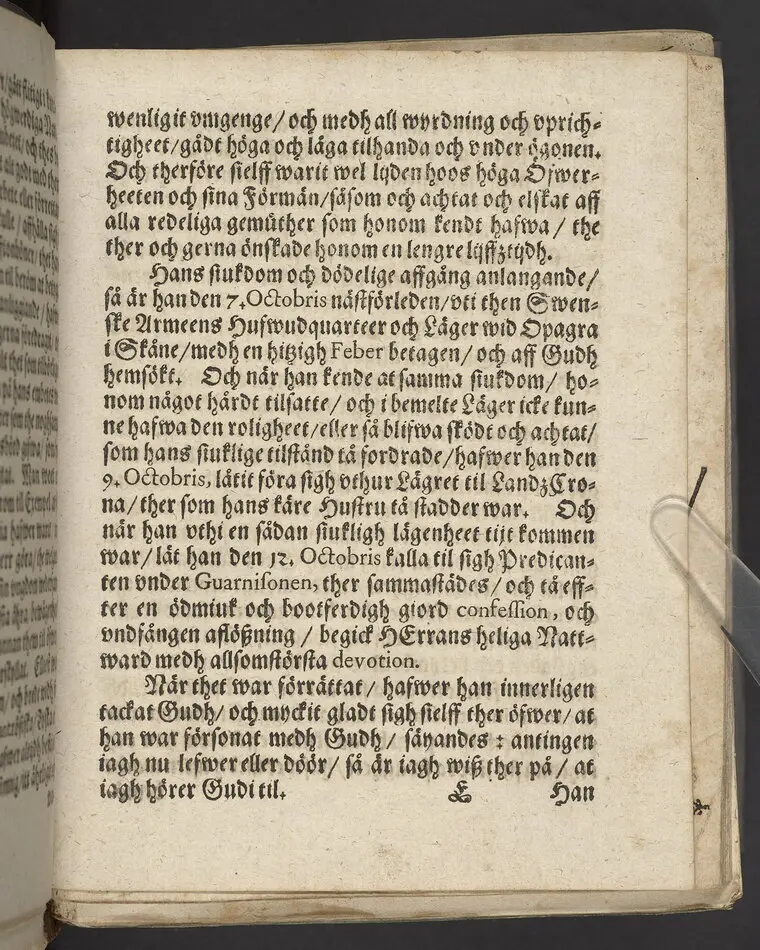 wenligit vmgenge/ och medh all wyrdning och vprich-
tigheet/ gådt höga och låga tilhanda och vnder ögonen.
Och therföre sielff warit wel lijden hoos höga Öfwer-
heeten och sina Förmän/ såsom och achtat och elskat aff
alla redeliga gemüther som honom kendt hafwa/ the
ther och gerna önskade honom en lengre lijffztijdh.
Hans siukdom och dödelige affgång anlangande/
så är han den 7. Octobris nästförleden/ vti then Swen-
ske Armeens Hufwudquarteer och Läger wid Opagra
i Skåne/ medh en hitzigh Feber betagen/ och aff Gudh
hemsökt. Och när han kende at samma siukdom/ ho-
nom något hårdt tilsatte/ och i bemelte Läger icke kun-
ne hafwa den roligheet/ eller så blifwa sködt och achtat/
som hans siuklige tilstånd tå fordrade/ hafwer han den
9. Octobris, låtit föra sigh vthur Lägret til LandzCro-
na/ ther som hans käre Hustru tå stadder war. Och
när han vthi en sådan siukligh lägenheet tijt kommen
war/ lät han den 12. Octobris kalla til sigh Predican-
ten vnder Guarnisonen, ther sammastädes/ och tå eff-
ter en ödmiuk och bootferdigh giord confession, och
vndfången aflößning/ begick HErrans heliga Natt-
ward medh allsomstörsta devotion.
När thet war förrättat/ hafwer han innerligen
tackat Gudh/ och myckit gladt sigh sielff ther öfwer/ at
han war försonat medh Gudh/ säyandes: antingen
iagh nu lefwer eller döör/ så är iagh wiß ther på/ at
iagh hörer Gudi til.
E Han